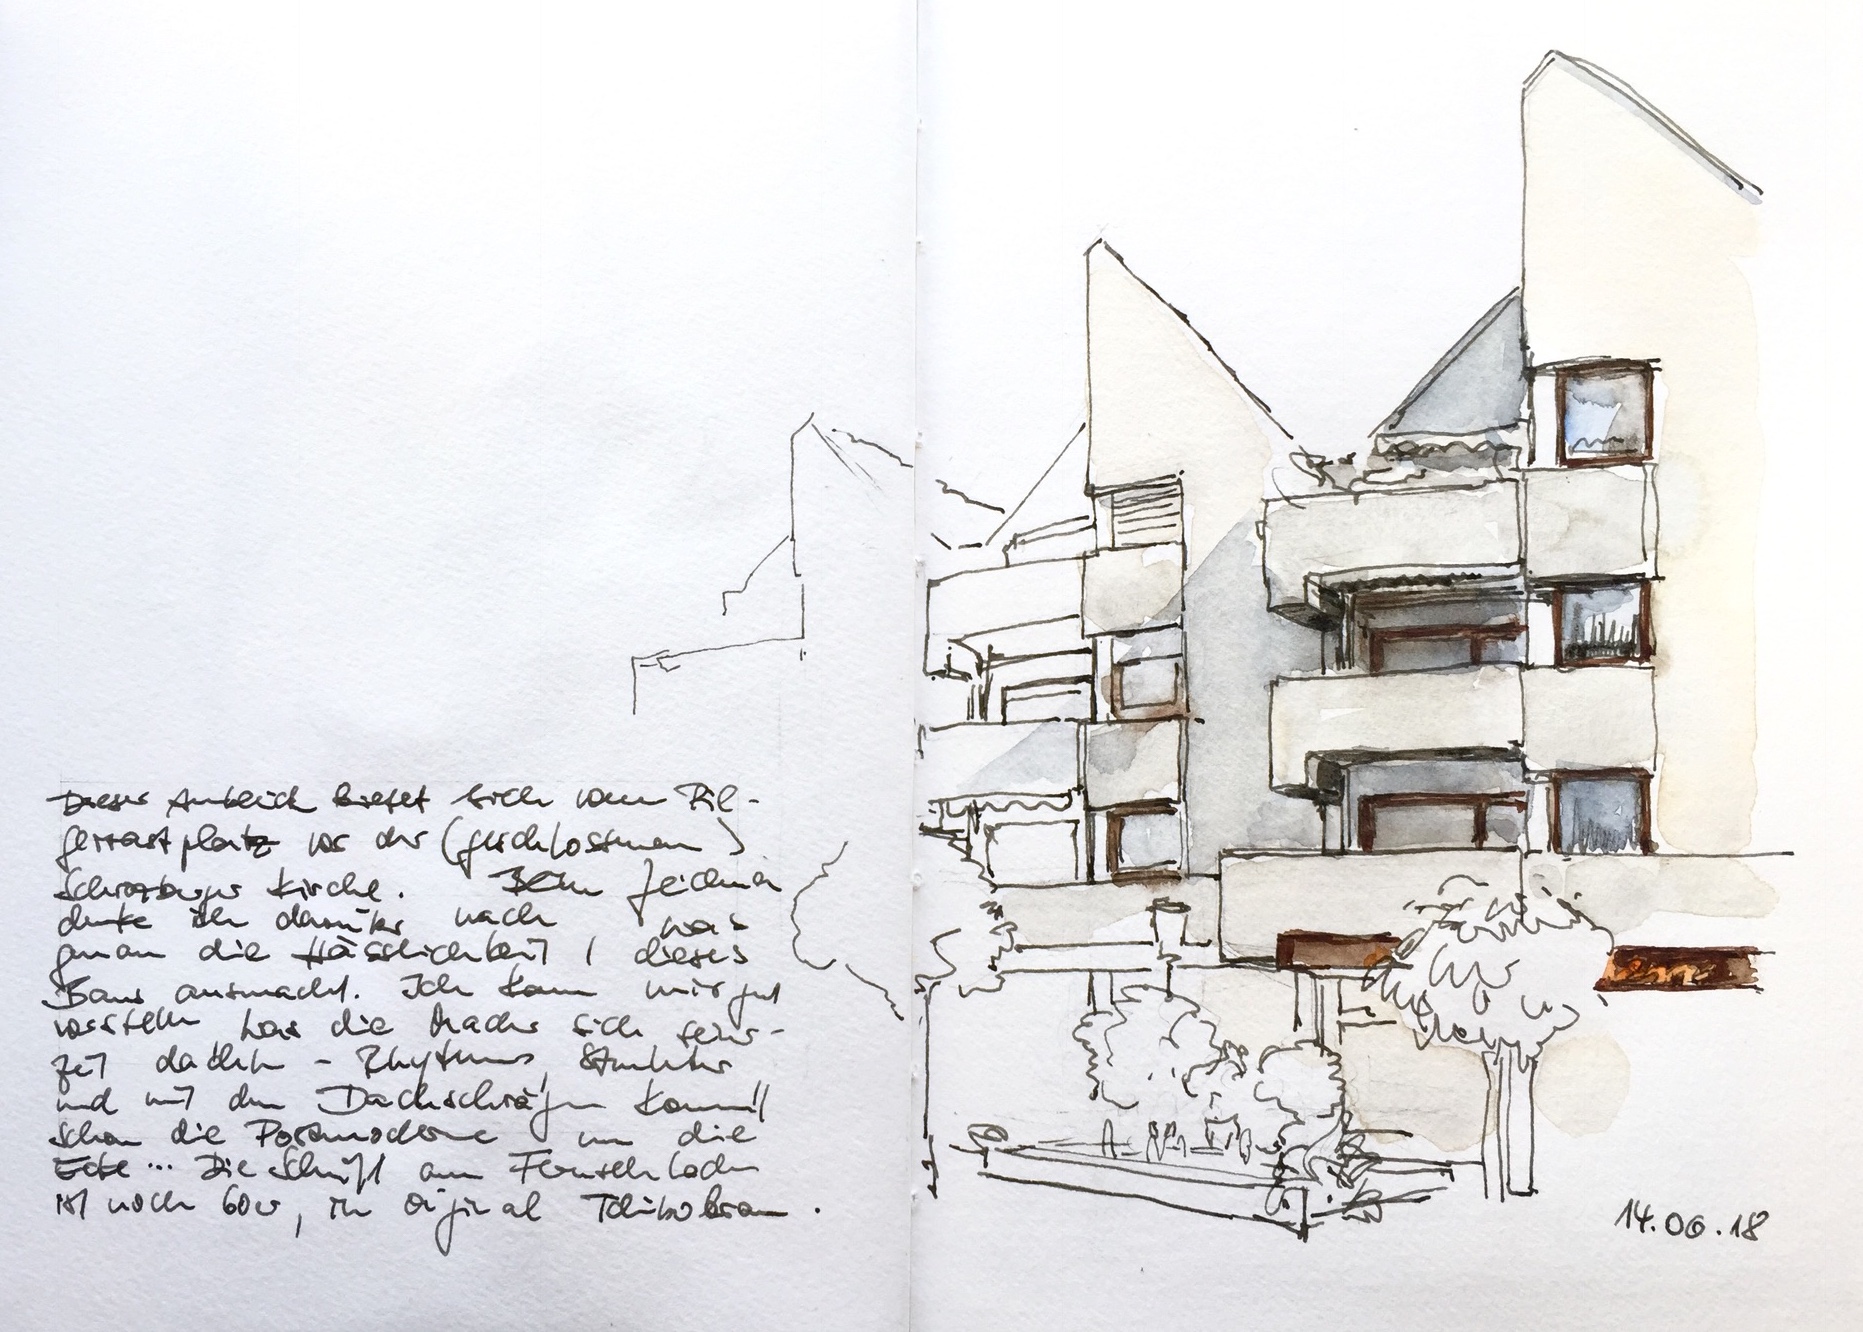 Dieser Anblick bietet sich vom Pil-
gerrastplatz vor der (geschlossenen)
Schrozberger Kirche. Beim Zeichnen
denke ich darüber nach was
genau die Hässlichkeit dieses
Baus ausmacht. Ich kann mir gut
vorstellen was die Macher sich seiner-
zeit dachten - Rhythmus, Struktur
und mit den Dachschrägen kommt
schon die Postmoderne um die
Ecke ... Die Schrift am Fernsehladen
ist noch 60er, in original Tchibobraun.
14.06.18